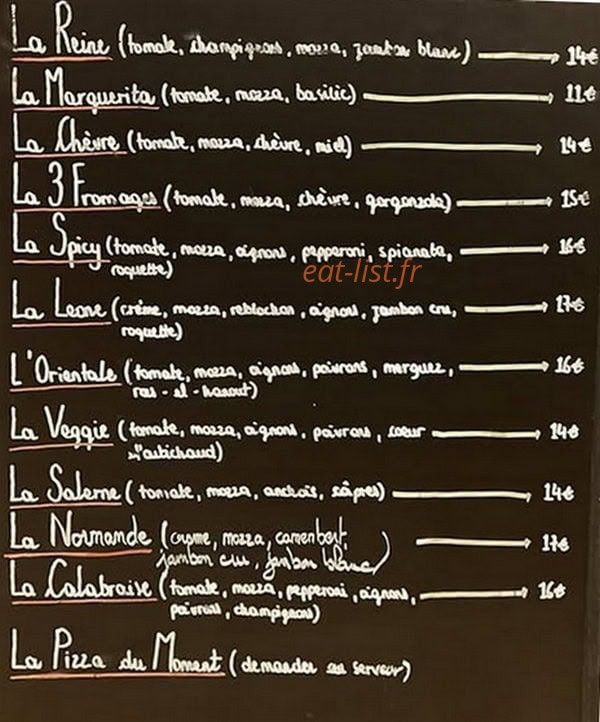 La Reine (tomate, champignons, mozza, jambon blanc) 14€
La Marguerita (tomate, mozza, basilic) 11€
La Chèvre (tomate, mozza, chèvre, miel) 14€
La 3 Fromages (tomate, mozza, chèvre, gorgonzola) 15€
La Spicy (tomate, mozza, oignons, pepperoni, spianata, 16€
roquette)
eat-list.fr
La Leone (crème, mozza, reblochon, oignons, jambon cru, 17€
roquette)
L'Orientale (tomate, mozza, oignons, poivrons, merguez, 16€
ras-el-hanout)
La Veggie (tomate, mozza, oignons, poivrons, coeur 14€
d'artichaud)
La Salerne (tomate, mozza, anchois, câpres) 14€
La Normande (crème, mozza, camembert, 17€
jambon cru, jambon blanc)
La Calabraise (tomate, mozza, pepperoni, oignons, 16€
poivrons, champignons)
La Pizza du Moment (demander au serveur)